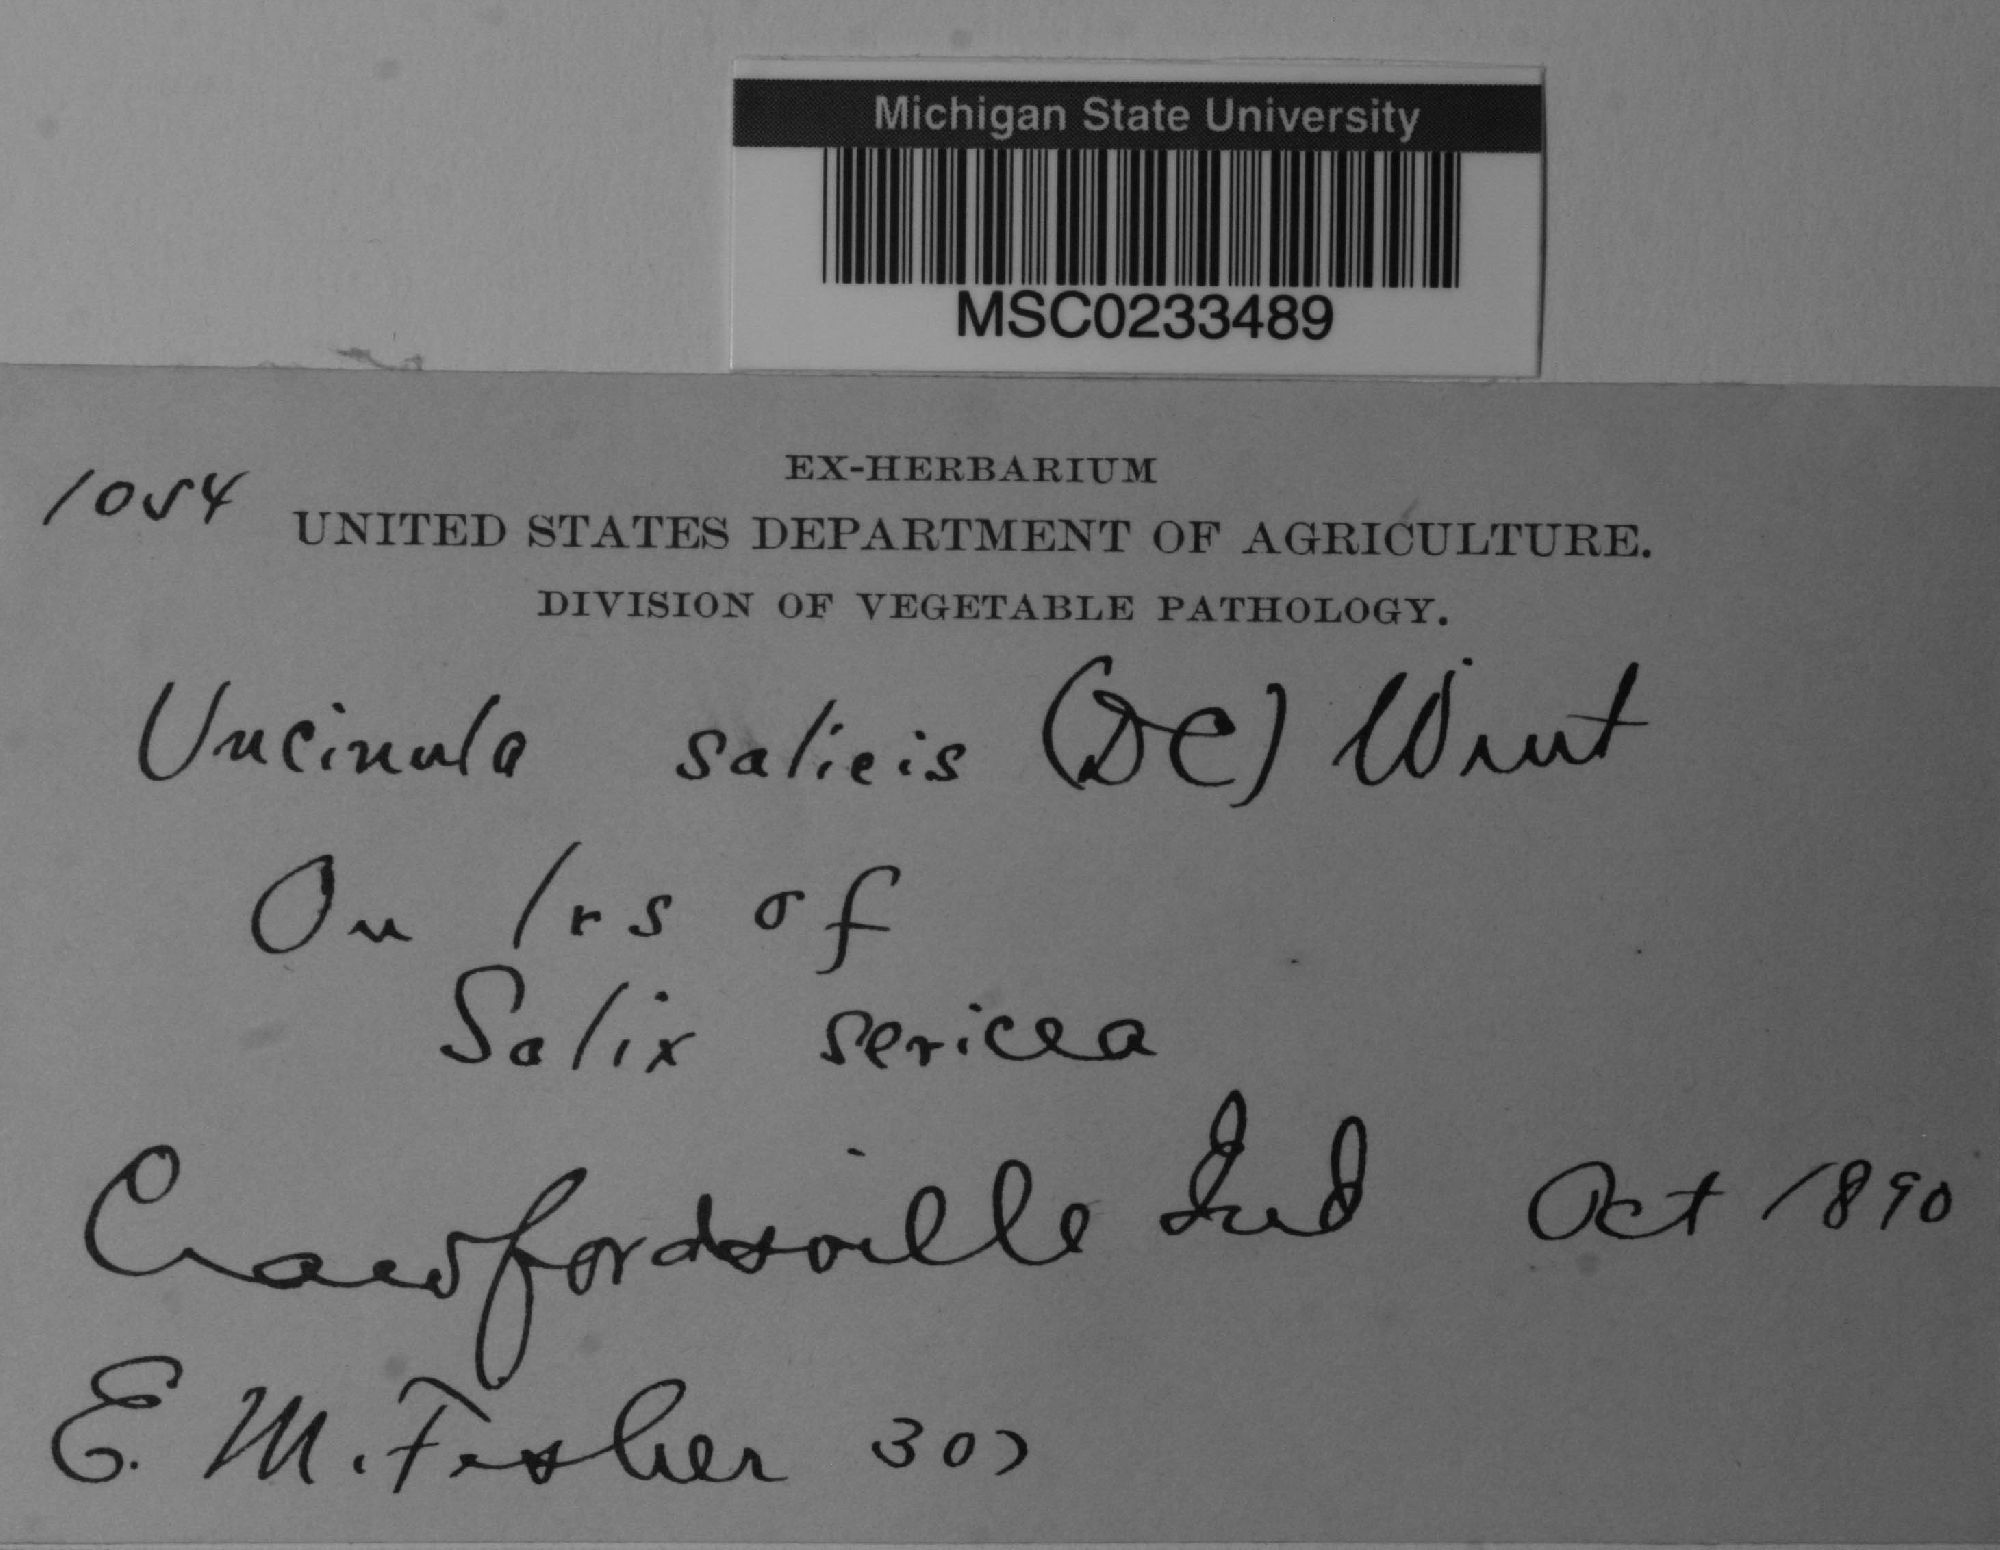 Michigan State University
MSC0233489
EX-HERBARIUM
1054 UNITED STATES DEPARTMENT OF AGRICULTURE.
DIVISION OF VEGETABLE PATHOLOGY.
Uncinula salicis (DC) Wint
On lvs of
Salix sericea
Crawfordsville Ind Oct 1890
E. M. Fisher 307